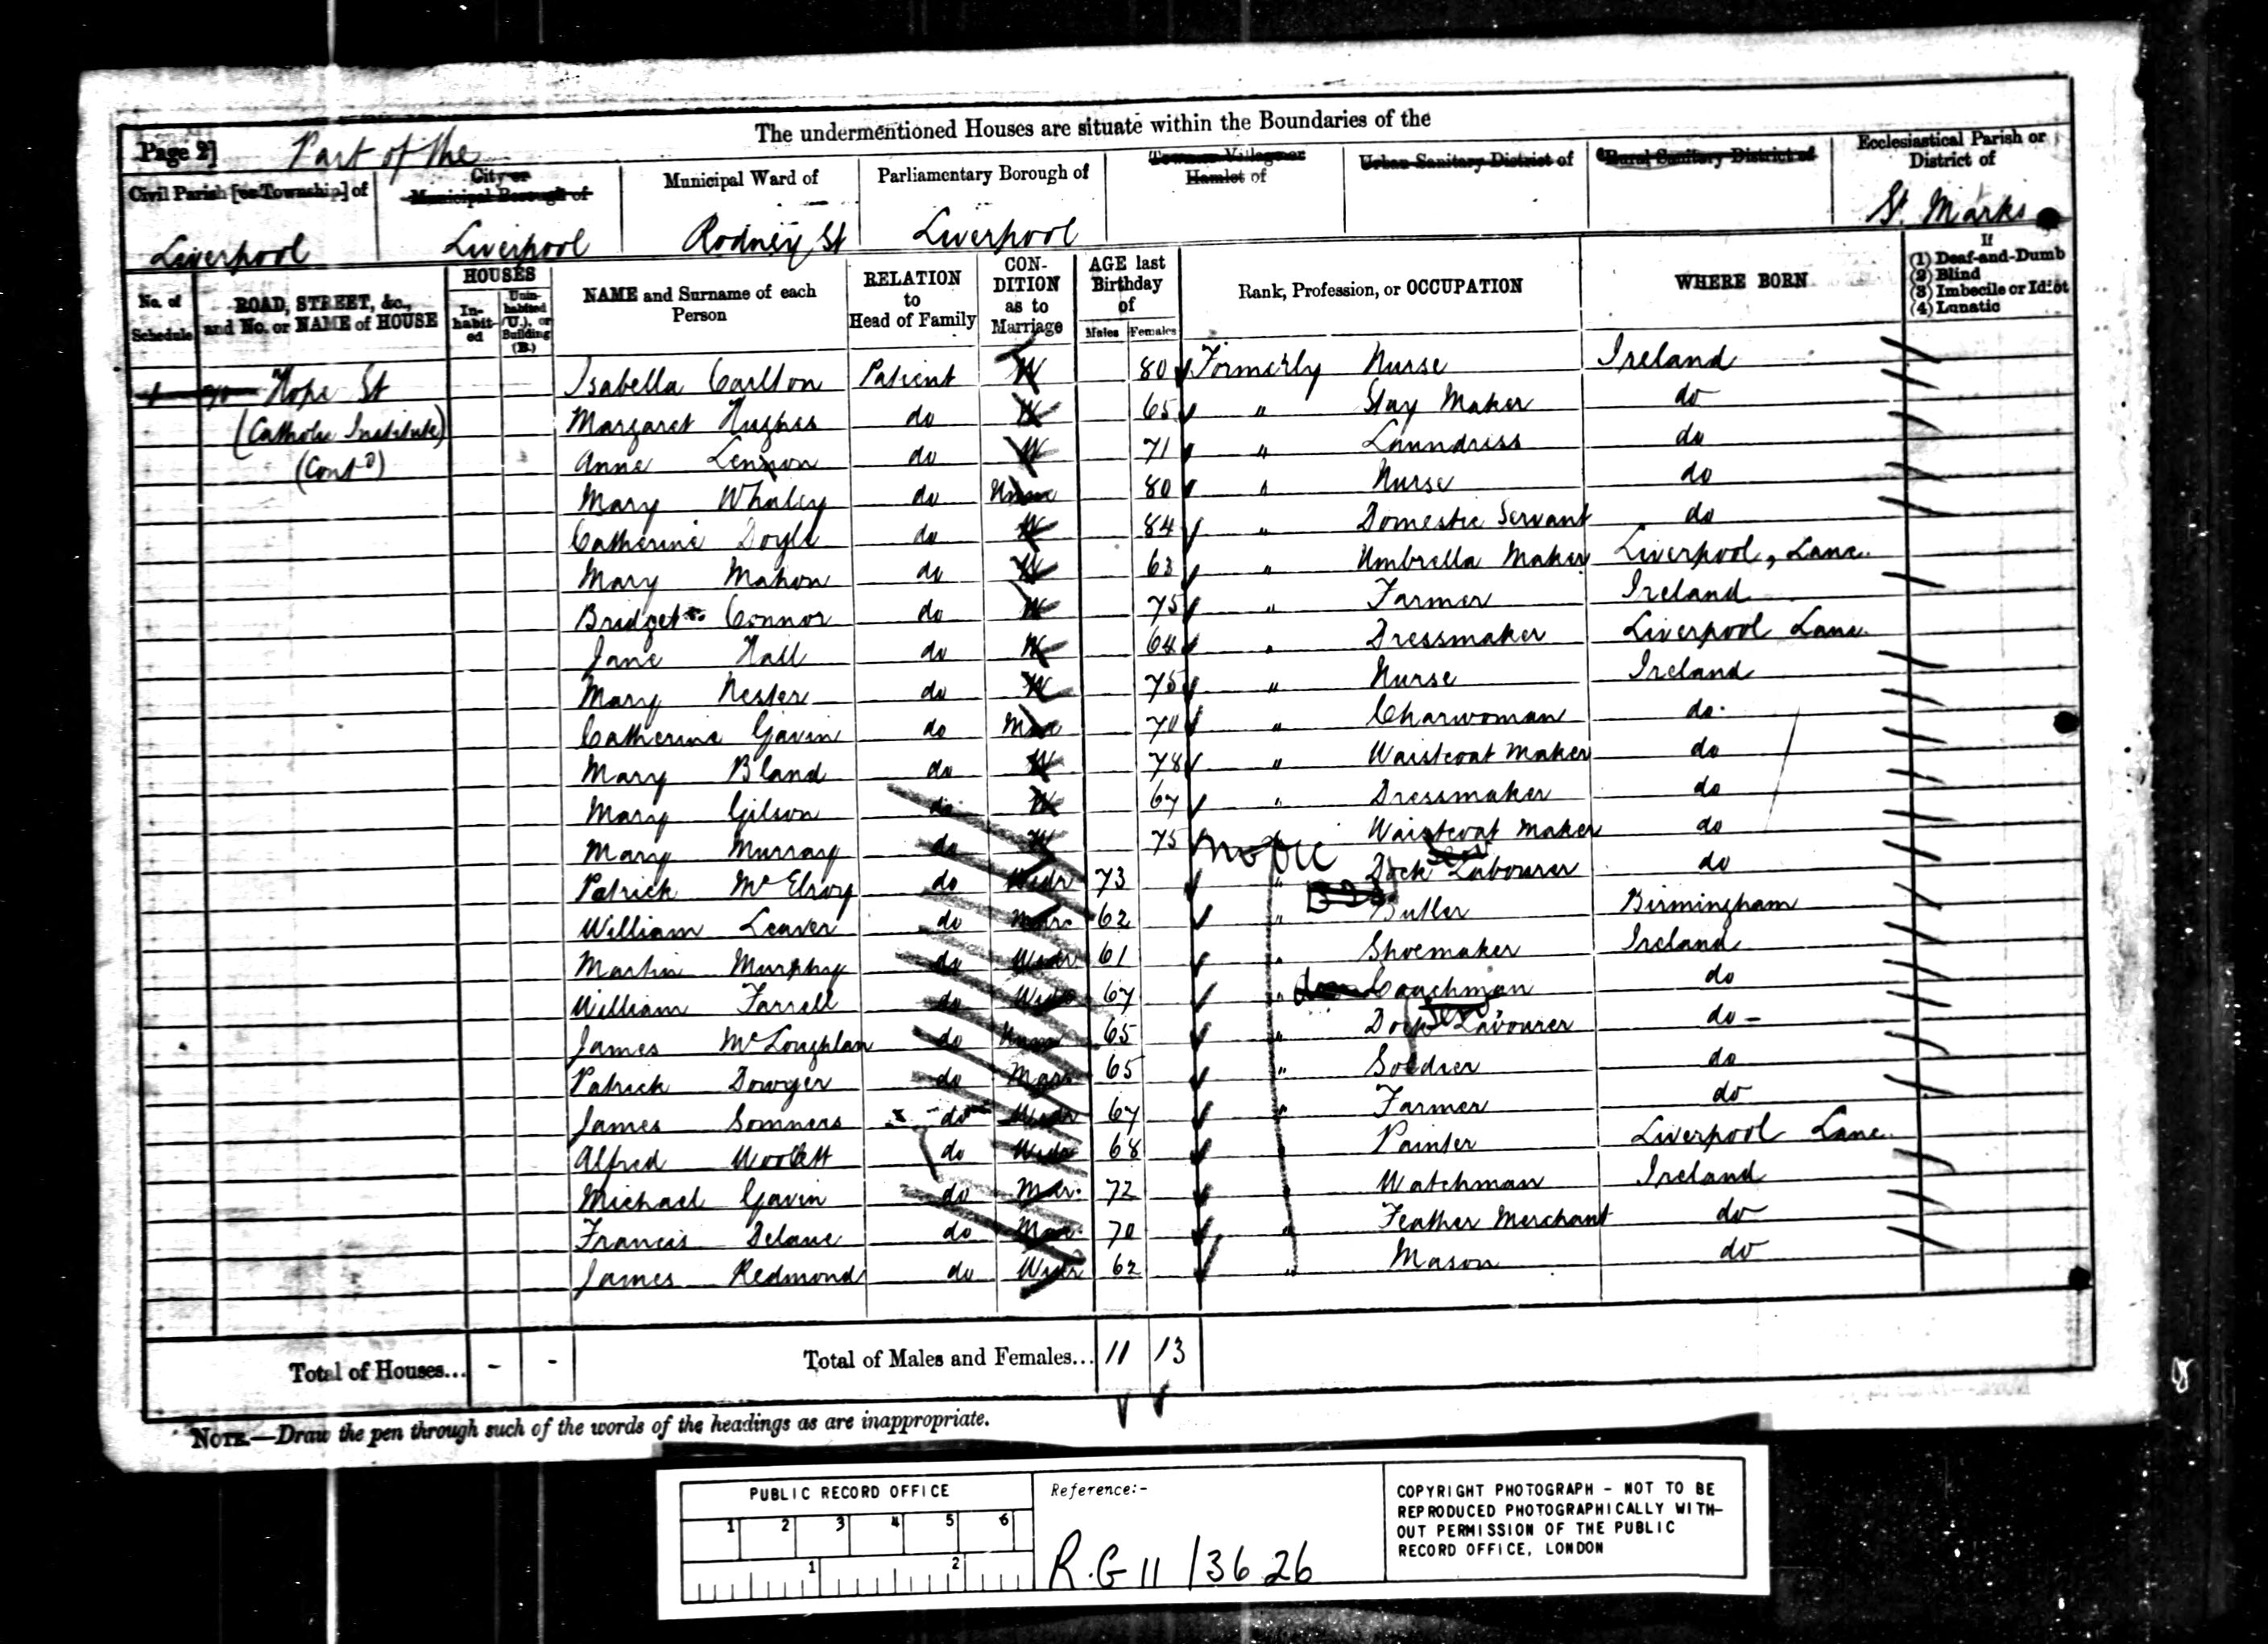 The undermentioned Houses are situate within the Boundaries of the
Page 2] Part of the
Civil Parish [or Township] of
City or Municipal Borough of
Municipal Ward of
Parliamentary Borough of
Town or Village or Hamlet of
Urban Sanitary District of
Rural Sanitary District of
Ecclesiastical Parish or District of
Liverpool Liverpool Rodney St Liverpool St. Marks
No. of Schedule
ROAD, STREET, &c., and No. or NAME of HOUSE
HOUSES
In-habit-ed
Unin-habited (U.), or Building (B.)
NAME and Surname of each Person
RELATION to Head of Family
CON-DITION as to Marriage
AGE last Birthday of
Males Females
Rank, Profession, or OCCUPATION
WHERE BORN
If
(1) Deaf-and-Dumb
(2) Blind
(3) Imbecile or Idiot
(4) Lunatic
Hope St Isabella Carlton Patient W 80 Formerly Nurse Ireland
(Catholic Institute) Margaret Hughes do W 65 " Stay Maker do
(Contd) Anne Lennon do W 71 " Laundress do
Mary Whaley do Unm 80 " Nurse do
Catherine Doyle do W 84 " Domestic Servant do
Mary Mahon do W 63 " Umbrella Maker Liverpool, Lanc.
Bridget Connor do W 75 " Farmer Ireland
Jane Hall do W 64 " Dressmaker Liverpool Lanc.
Mary Nester do W 75 " Nurse Ireland
Catherine Gavin do Mar 70 " Charwoman do
Mary Bland do W 78 " Waistcoat Maker do
Mary Gilson do W 67 " Dressmaker do
Mary Murray do W 75 Waistcoat Maker do
Patrick McElroy do Widr 73 " Dock Labourer do
William Leaver do Mar. 62 " Butler Birmingham
Martin Murphy do Widr 61 " Shoemaker Ireland
William Farrell do Widr 67 " Coachman do
James McLoughlan do Unm 65 " Dock Labourer do
Patrick Dowyer do Mar. 65 " Soldier do
James Somners do Widr 67 " Farmer do
Alfred Woollett do Widr 68 " Painter Liverpool Lanc.
Michael Gavin do Mar. 72 " Watchman Ireland
Francis Delane do Mar. 70 " Feather Merchant do
James Redmond do Widr 62 " Mason do
Total of Houses... - - Total of Males and Females... 11 13
NOTE.—Draw the pen through such of the words of the headings as are inappropriate.
PUBLIC RECORD OFFICE
1 2 3 4 5 6
1 2
Reference:-
R.G 11 /3626
COPYRIGHT PHOTOGRAPH - NOT TO BE
REPRODUCED PHOTOGRAPHICALLY WITH-
OUT PERMISSION OF THE PUBLIC
RECORD OFFICE, LONDON